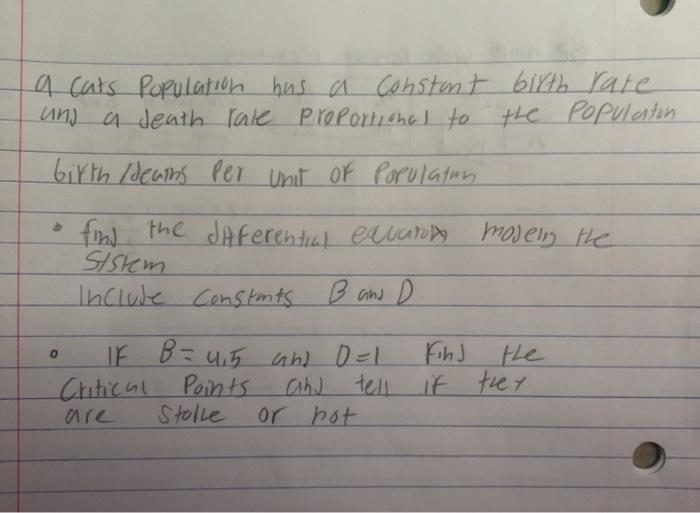 a Cats Population has a Constant birth rate
and a death rate Proportional to the Populaton
birth/deaths Per unit of Population
• find the differential equation modeling the
System
Include Constants B and D
• IF B = 4.5 and D = 1 Find the
Critical Points and tell if they
are Stable or not